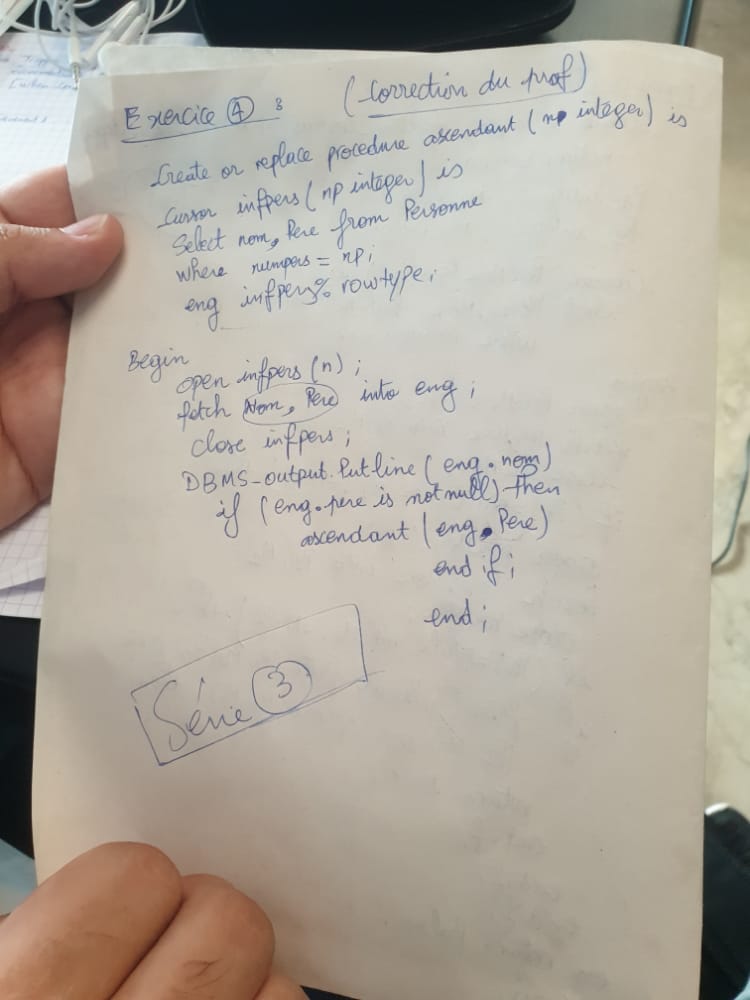 Exercice 4 : (Correction du prof)
Create or replace procedure ascendant (np integer) is
Cursor infpers (np integer) is
Select nom, Pere from Personne
where numpers = np;
eng infpers% rowtype;
Begin
open infpers (n) ;
fetch Nom, Pere into eng ;
close infpers ;
DBMS_output.Putline (eng.nom)
if (eng.pere is not null) then
ascendant (eng.Pere)
end if ;
end ;
Série 3